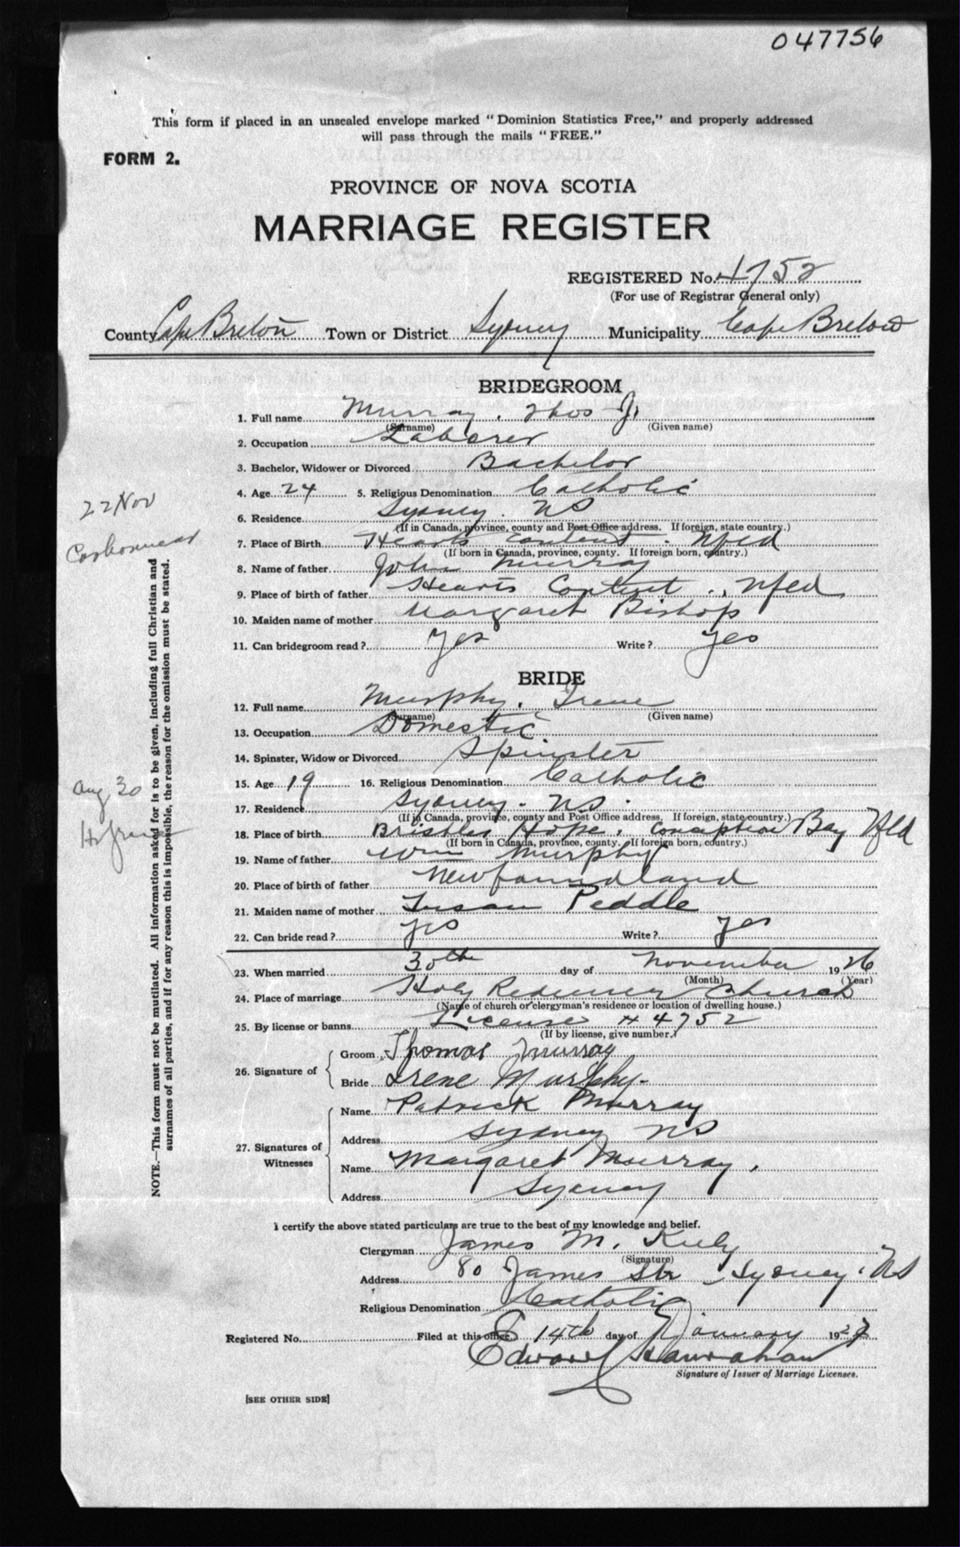 047756
This form if placed in an unsealed envelope marked "Dominion Statistics Free," and properly addressed
will pass through the mails "FREE."
FORM 2.
PROVINCE OF NOVA SCOTIA
MARRIAGE REGISTER
REGISTERED No. 4752
(For use of Registrar General only)
County Cape Breton Town or District Sydney Municipality Cape Breton
BRIDEGROOM
1. Full name Murray, Thos J.
(Surname) (Given name)
2. Occupation Laborer
3. Bachelor, Widower or Divorced Bachelor
4. Age 24 5. Religious Denomination Catholic
6. Residence Sydney. NS
(If in Canada, province, county and Post Office address. If foreign, state country.)
7. Place of Birth Hearts Content. Nfld
(If born in Canada, province, county. If foreign born, country.)
8. Name of father John Murray
9. Place of birth of father Hearts Content., Nfld
10. Maiden name of mother Margaret Bishop
11. Can bridegroom read? Yes Write? Yes
BRIDE
12. Full name Murphy, Irene
(Surname) (Given name)
13. Occupation Domestic
14. Spinster, Widow or Divorced Spinster
15. Age 19 16. Religious Denomination Catholic
17. Residence Sydney. NS.
(If in Canada, province, county and Post Office address. If foreign, state country.)
18. Place of birth Bristles Hope. Conception Bay Nfld
(If born in Canada, province, county. If foreign born, country.)
19. Name of father Wm Murphy
20. Place of birth of father Newfoundland
21. Maiden name of mother Susan Peddle
22. Can bride read? yes Write? yes
23. When married 30th day of November 1926
(Month) (Year)
24. Place of marriage Holy Redeemer Church
(Name of church or clergyman's residence or location of dwelling house.)
25. By license or banns License # 4752
(If by license, give number.)
26. Signature of
Groom Thomas Murray
Bride Irene Murphy-
27. Signatures of Witnesses
Name Patrick Murray
Address Sydney NS
Name Margaret Murray.
Address Sydney
I certify the above stated particulars are true to the best of my knowledge and belief.
Clergyman James M. Kiely
(Signature)
Address 80 James Str Sydney. NS
Religious Denomination Catholic
Registered No. Filed at this office 14th day of January 1927
Edward Hanrahan
Signature of Issuer of Marriage Licenses.
[SEE OTHER SIDE]
22 Nov
Carbonear
Aug 30
NOTE.—This form must not be mutilated. All information asked for is to be given, including full Christian and
surnames of all parties, and if for any reason this is impossible, the reason for the omission must be stated.